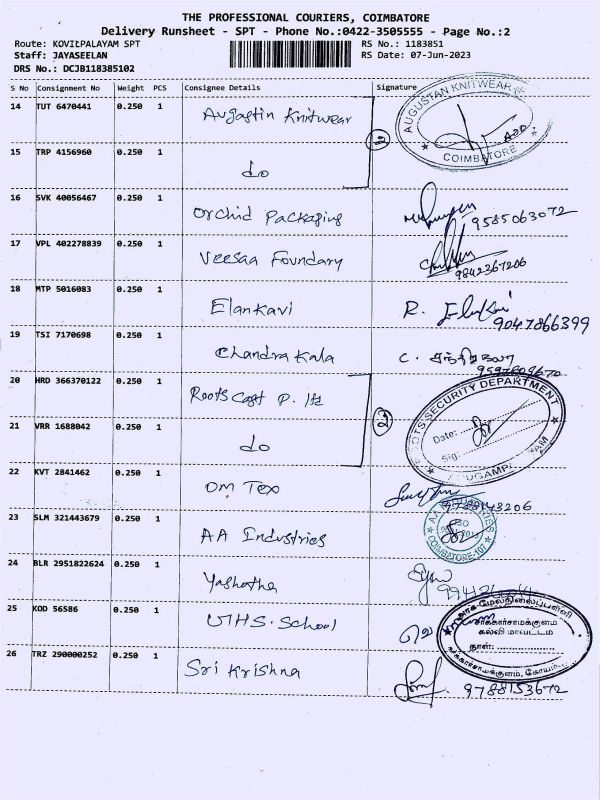 THE PROFESSIONAL COURIERS, COIMBATORE
Delivery Runsheet - SPT - Phone No.:0422-3505555 - Page No.:2
Route: KOVILPALAYAM SPT RS No.: 1183851
Staff: JAYASEELAN RS Date: 07-Jun-2023
DRS No.: DCJB118385102
S No Consignment No Weight PCS Consignee Details Signature
14 TUT 6470441 0.250 1 Augastin Knitwear AUGUSTAN KNITWEAR COIMBATORE
15 TRP 4156960 0.250 1 do 2
16 SVK 40056467 0.250 1 Orchid Packaging 9585063072
17 VPL 402278839 0.250 1 Veesaa Foundary 9842367206
18 MTP 5016083 0.250 1 Elankavi R. 9047866399
19 TSI 7170698 0.250 1 Chandra Kala C. சந்திரகலா
20 HRD 366370122 0.250 1 Roots Cast P. ltd OTS SECURITY DEPARTMENT
21 VRR 1688042 0.250 1 do 2 Date: Sig:
22 KVT 2841462 0.250 1 OM Tex 9788143206
23 SLM 321443679 0.250 1 AA Industries COIMBATORE-107
24 BLR 2951822624 0.250 1 Yashotha
25 KOD 56586 0.250 1 School அரசு மேல்நிலைப்பள்ளி
சர்க்கார்சாமக்குளம்
கல்வி மாவட்டம்
நாள்:
26 TRZ 290000252 0.250 1 Sri Krishna 9788153672